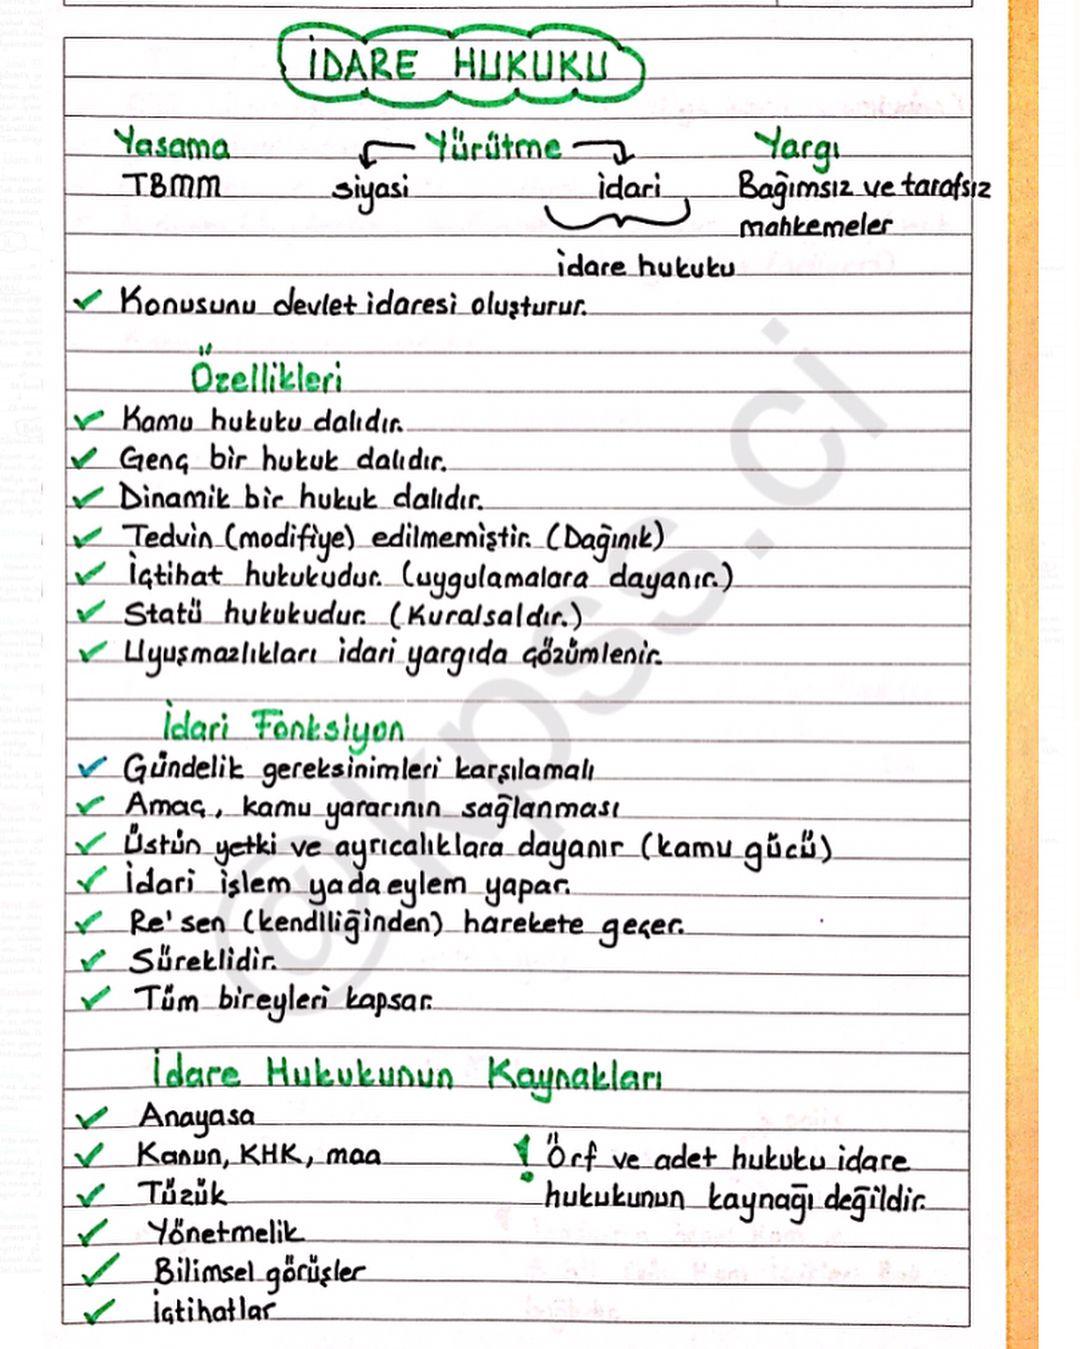 İDARE HUKUKU
Yasama Yürütme Yargı
TBMM siyasi idari Bağımsız ve tarafsız
mahkemeler
idare hukuku
Konusunu devlet idaresi oluşturur.
Özellikleri
Kamu hukuku dalıdır.
Genç bir hukuk dalıdır.
Dinamik bir hukuk dalıdır.
Tedvin (modifiye) edilmemiştir. (Dağınık)
İçtihat hukukudur. (uygulamalara dayanır.)
Statü hukukudur. (Kuralsaldır.)
Uyuşmazlıkları idari yargıda çözümlenir.
İdari Fonksiyon
Gündelik gereksinimleri karşılamalı
Amaç, kamu yararının sağlanması
Üstün yetki ve ayrıcalıklara dayanır (kamu gücü)
İdari işlem yada eylem yapar.
Re'sen (kendiliğinden) harekete geçer.
Süreklidir.
Tüm bireyleri kapsar.
İdare Hukukunun Kaynakları
Anayasa
Kanun, KHK, maa
! Örf ve adet hukuku idare
Tüzük
hukukunun kaynağı değildir.
Yönetmelik
Bilimsel görüşler
İçtihatlar
@kpss.ci